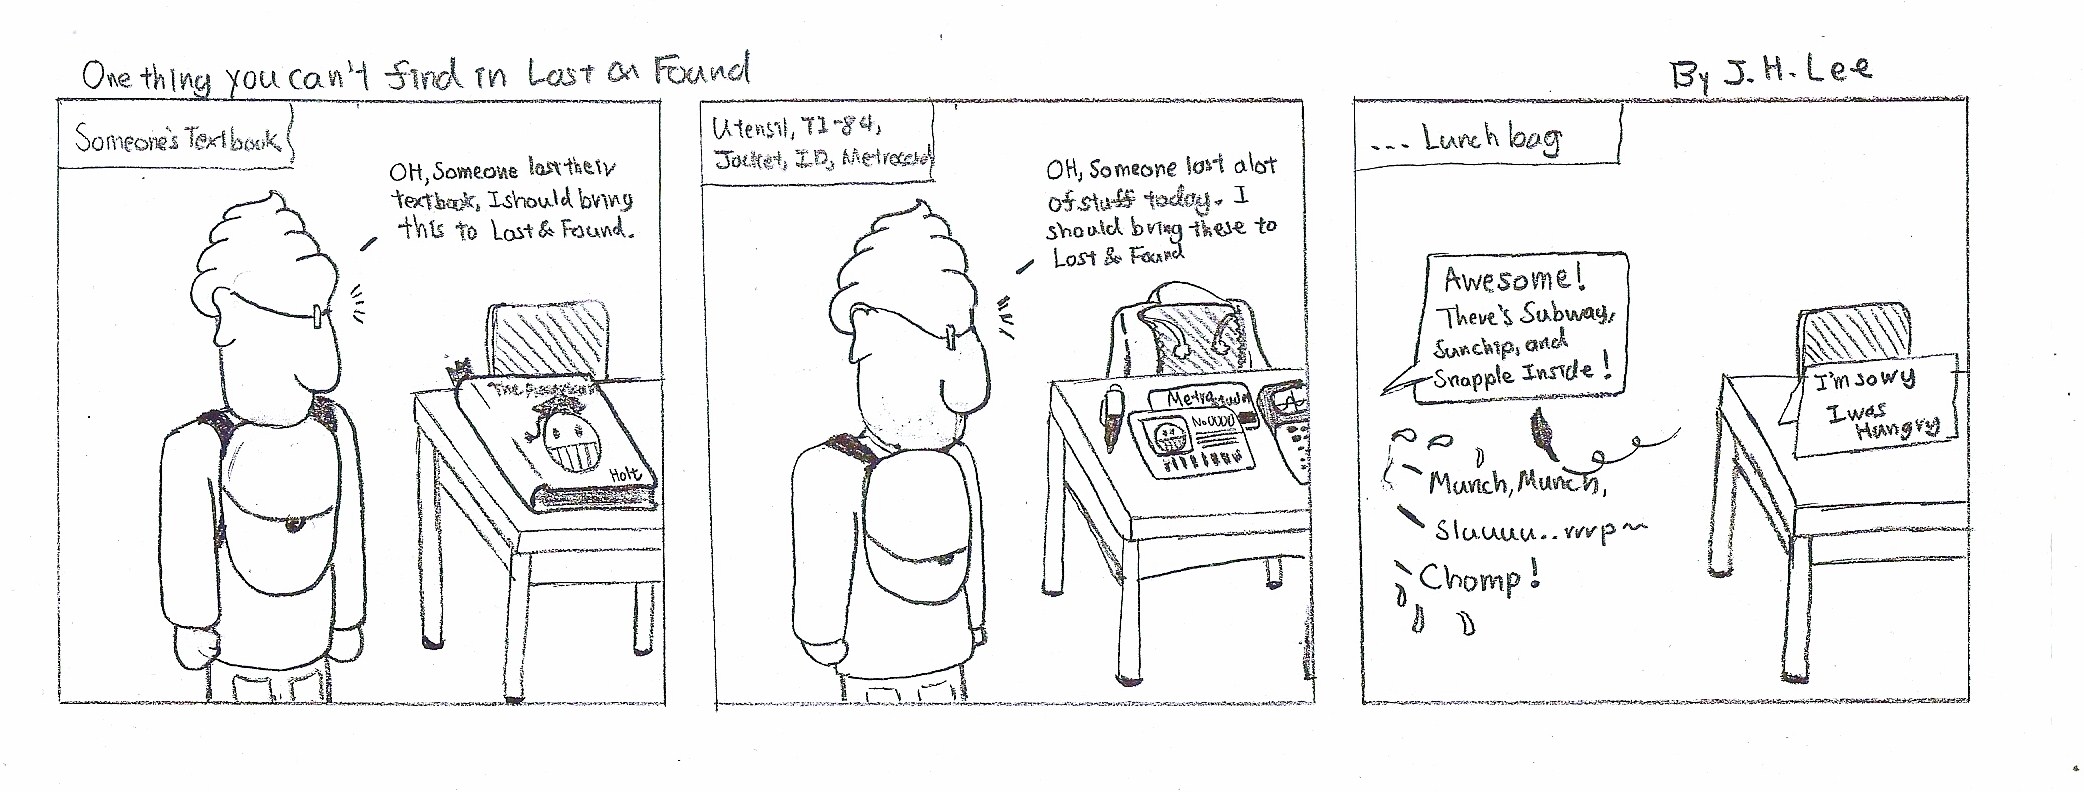 One thing you can't find in Lost an Found
By J. H. Lee
Someone's Textbook
OH, Someone lost their
textbook, I should bring
this to Lost & Found.
The
Holt
Utensil, TI-84,
Jacket, ID, Metrocard
OH, Someone lost alot
of stuff today. I
should bring these to
Lost & Found
No 0000
... Lunch bag
Awesome!
There's Subway,
Sunchip, and
Snapple Inside!
Munch, Munch,
Sluuuu..rrrp~
Chomp!
I'm sowy
I was
Hungry